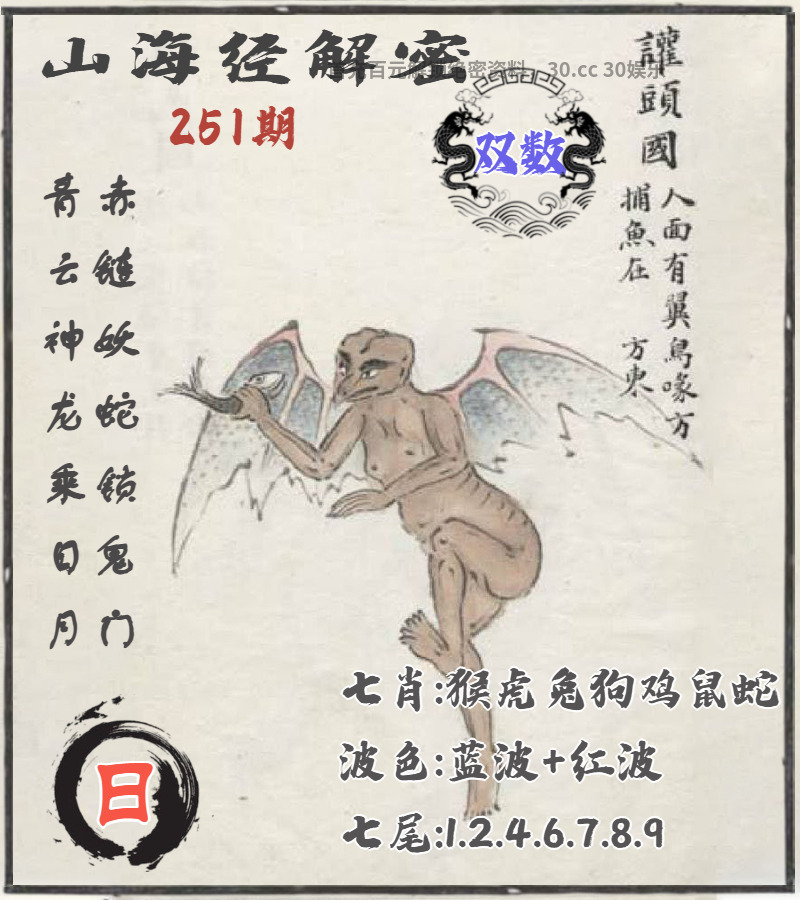 山海经解密
首充百元解锁绝密资料 30.cc 30娱乐
251期
双数
讙頭國
人面有翼鳥喙方
捕魚在 方東
赤链妖蛇锁鬼门
青云神龙乘日月
七肖:猴虎兔狗鸡鼠蛇
波色:蓝波+红波
七尾:1.2.4.6.7.8.9
日